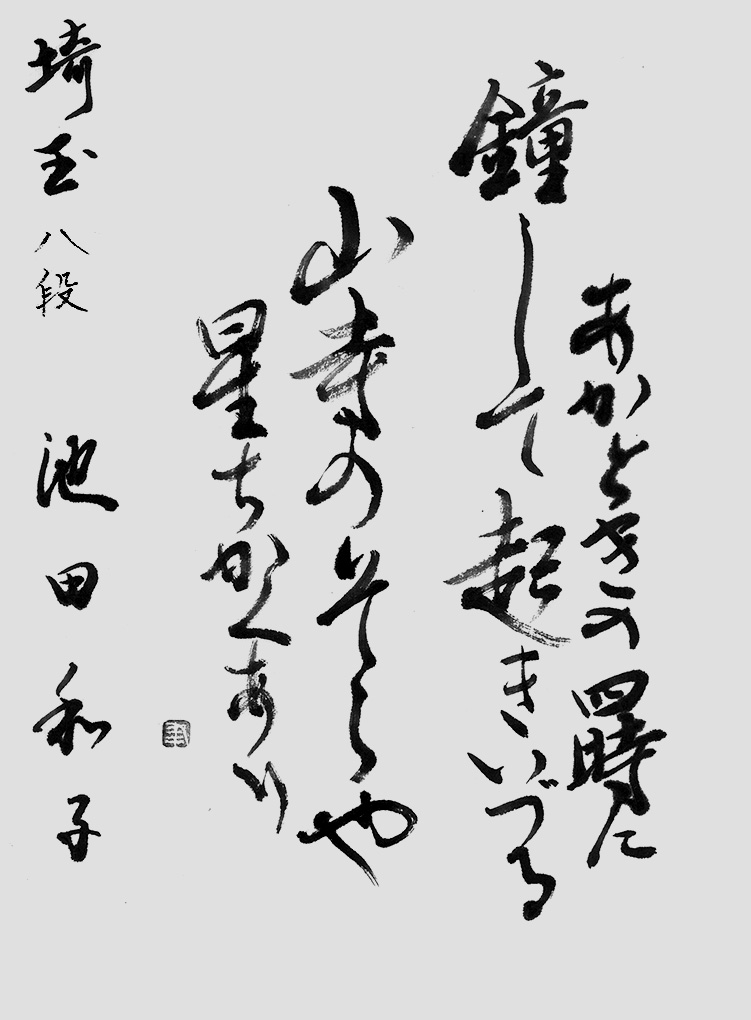 あかときの四時に
鐘して起きいづる
山寺のそらや
星ちかくあり
埼玉八段 池田和子